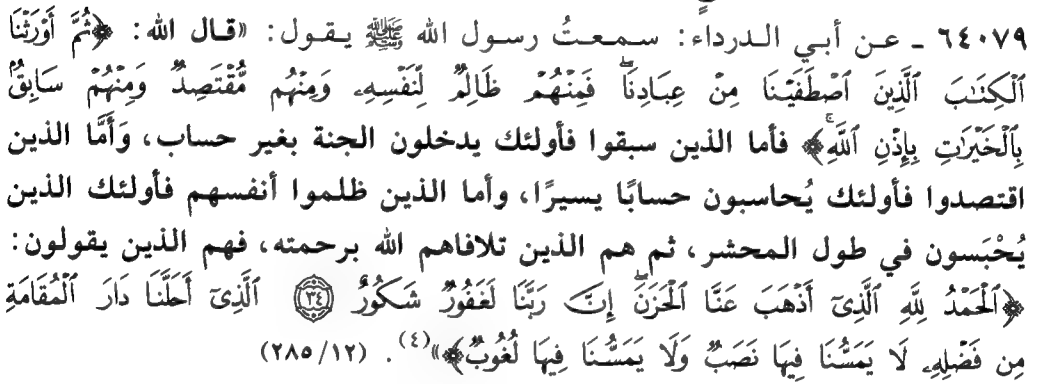 ٦٤٠٧٩ ـ عـن أبـي الـدرداء: سـمـعـتُ رسـول الله ﷺ يـقـول: «قـال الله: ﴿ثُمَّ أَوْرَثْنَا
ٱلْكِتَٰبَ ٱلَّذِينَ ٱصْطَفَيْنَا مِنْ عِبَادِنَاۖ فَمِنْهُمْ ظَالِمٌ لِّنَفْسِهِۦ وَمِنْهُم مُّقْتَصِدٌ وَمِنْهُمْ سَابِقٌۢ
بِٱلْخَيْرَٰتِ بِإِذْنِ ٱللَّهِۚ﴾ فأما الذين سبقوا فأولئك يدخلون الجنة بغير حساب، وَأَمَّا الذين
اقتصدوا فأولئك يُحاسبون حسابًا يسيرًا، وأما الذين ظلموا أنفسهم فأولئك الذين
يُحْبَسون في طول المحشر، ثم هم الذين تلافاهم الله برحمته، فهم الذين يقولون:
﴿ٱلْحَمْدُ لِلَّهِ ٱلَّذِىٓ أَذْهَبَ عَنَّا ٱلْحَزَنَۖ إِنَّ رَبَّنَا لَغَفُورٌ شَكُورٌ ٣٤ ٱلَّذِىٓ أَحَلَّنَا دَارَ ٱلْمُقَامَةِ
مِن فَضْلِهِۦ لَا يَمَسُّنَا فِيهَا نَصَبٌ وَلَا يَمَسُّنَا فِيهَا لُغُوبٌ﴾»(٤). (١٢/ ٢٨٥)